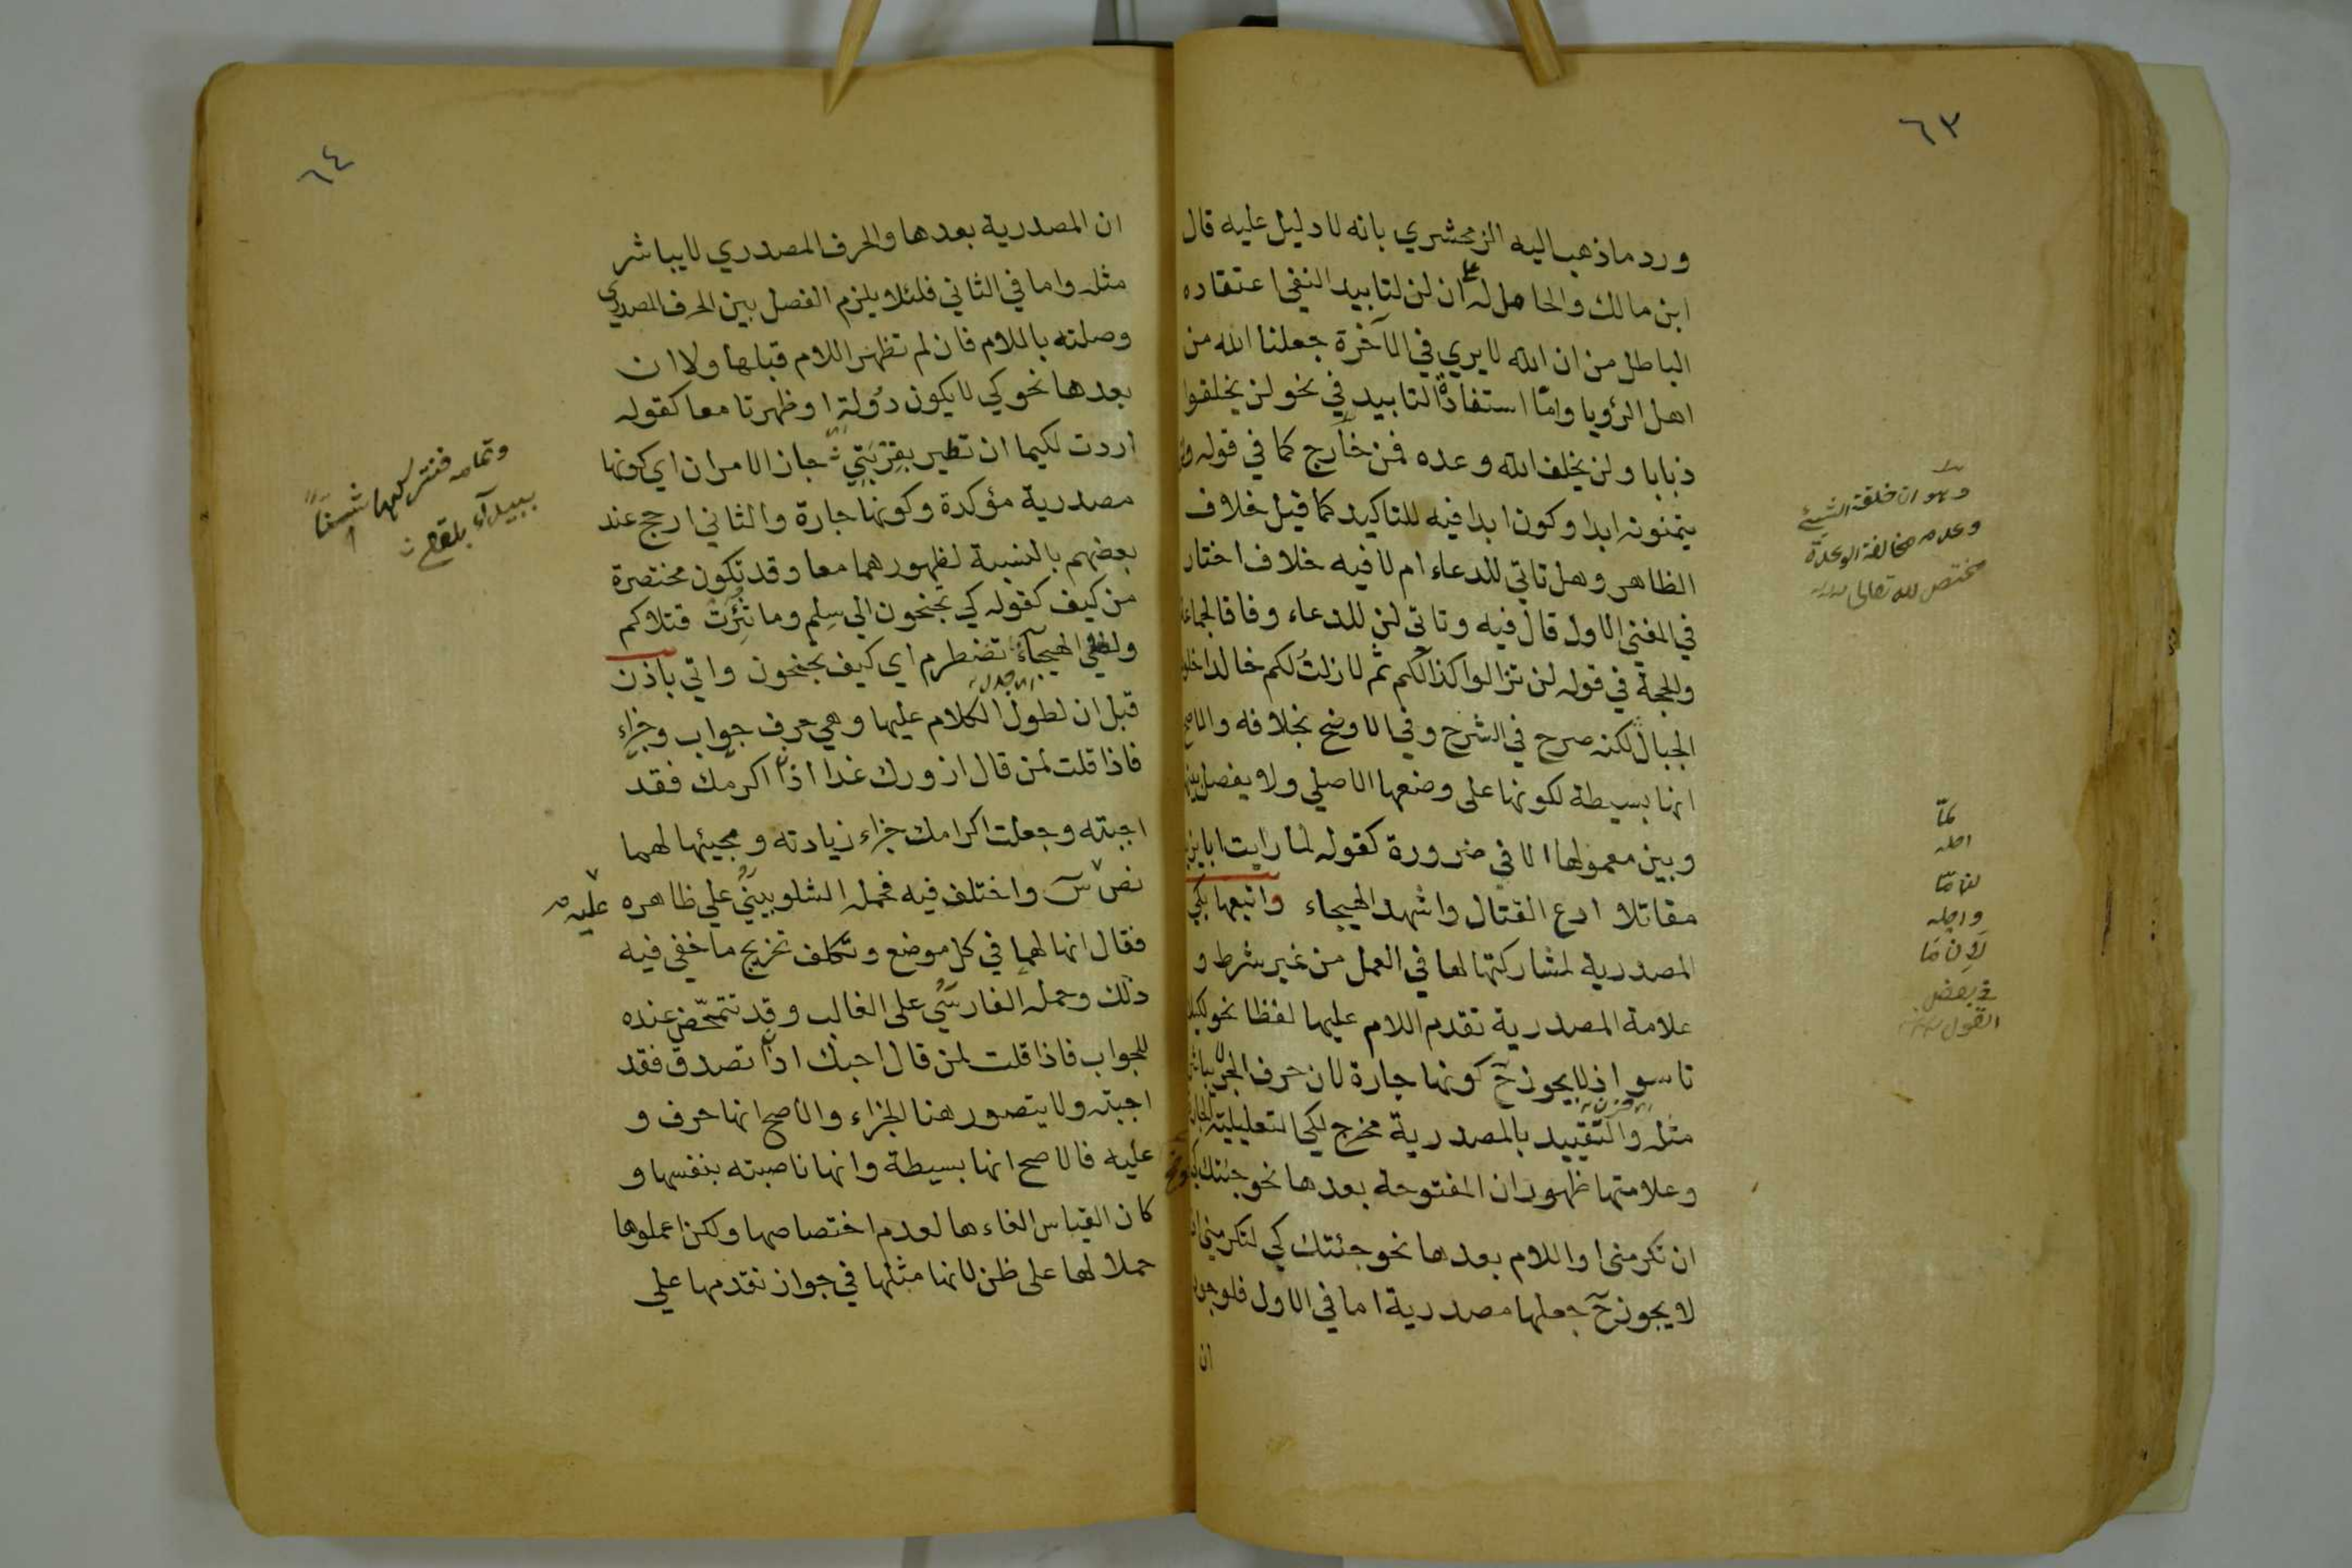 ٦٣
ورد ما ذهب اليه الزمحشري بانه لا دليل عليه قال
ابن مالك والحامل له على ان لن لتابيد النفي اعتقاده
الباطل من ان الله لا يري في الآخرة جعلنا الله من
اهل الرؤيا وامّا استفادة التابيد في نحو لن يخلقوا
ذبابا ولن يخلف الله وعده فمن خارج كما في قوله
يتمنونه ابدا وكون ابدا فيه للتاكيد كما قيل خلاف
الظاهر وهل تاتي للدعاء ام لا فيه خلاف اختار
في المغني الاول قال فيه وتاتي لن للدعاء وفاقا لجماعة
والحجة في قوله لن تزالوا كذالكم ثم لا زلت لكم خالدا خلود
الجبال لكنه صرح في الشرح وفي الاوضح بخلافه والاصح
انها بسيطة لكونها على وضعها الاصلي ولا يفصل بينها
وبين معمولها الا في ضرورة كقوله لما رايت ابا يزيد
مقاتلا ادع القتال واشهد الهيجاء واتبعها بكي
المصدرية لمشاركتها لها في العمل من غير شرط و
علامة المصدرية تقدم اللام عليها لفظا نحو لكيلا
تاسوا اذ لا يجوز حٓ كونها جارة لان حرف الجر لا يباشر
مثله والتقييد بالمصدرية مخرج لكي التعليلية الجارة
وعلامتها ظهور ان المفتوحة بعدها نحو جئتك كي
ان تكرمني او اللام بعدها نحو جئتك كي لتكرمني اذ
لا يجوز حٓ جعلها مصدرية اما في الاول فلوجود
ان
وهو ان خلقة الشيئ
وعدم مخالفة الوعدة
مختص لله تعالى
لمّا
اصله
لن مّا
واصله
لان مّا
في بعض
القول
٦٤
ان المصدرية بعدها والحرف المصدري لا يباشر
مثله واما في الثاني فلئلا يلزم الفصل بين الحرف المصدري
وصلته باللام فان لم تظهر اللام قبلها ولا ان
بعدها نحو كي لا يكون دُولة او ظهرتا معا كقوله
اردت لكيما ان تطير بقِرْبَتِي جاز الامران اي كونها
مصدرية مؤكدة وكونها جارة والثاني ارجح عند
بعضهم بالنسبة لظهورهما معا وقد تكون مختصرة
من كيف كقوله كي تجنحون الي سِلم وما ثُئِرَتْ قتلاكم
ولظي الهيجآء تضطرم اي كيف تجنحون واتي باذن
قبل ان لطول الكلام عليها وهي حرف جواب وجزاء
فاذا قلت لمن قال ازورك غدا اذاً اكرمك فقد
اجبته وجعلت اكرامك جزاء زيادته ومجيئها لهما
نص سٓ واختلف فيه فحمله الشلوبيني علي ظاهره عليه
فقال انها لهما في كل موضع وتكلف تخريج ما خفي فيه
ذلك وحمله الفارسي على الغالب وقد تتمحّض عنده
للجواب فاذا قلت لمن قال احبك اذاً تصدق فقد
اجبته ولا يتصور هنا الجزاء والاصح انها حرف و
عليه فالاصح انها بسيطة وانها ناصبته بنفسها و
كان القياس الغاءها لعدم اختصاصها ولكن اعملوها
حملا لها على ظن لانها مثلها في جواز تقدمها علي
وتمامه فتتركها شنّاً
ببيدآء بلقع